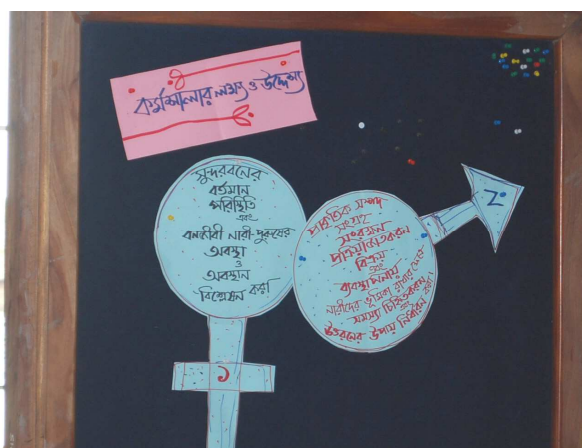 কর্মশালার লক্ষ্য ও উদ্দেশ্য
সুন্দরবনের
বর্তমান
পরিস্থিতি
এবং
বনজীবী নারী-পুরুষের
অবস্থা
ও
অবস্থান
বিশ্লেষন করা
১
প্রাকৃতিক সম্পদ
সংগ্রহ
সংরক্ষন
প্রক্রিয়াজাতকরন
বিক্রয়
এবং
ব্যবস্থাপনায়
নারীদের ভূমিকা রাখার ক্ষেত্রে
সমস্যা চিহ্নিতকরন এবং
উত্তরনের উপায় নির্ধারন করা
২